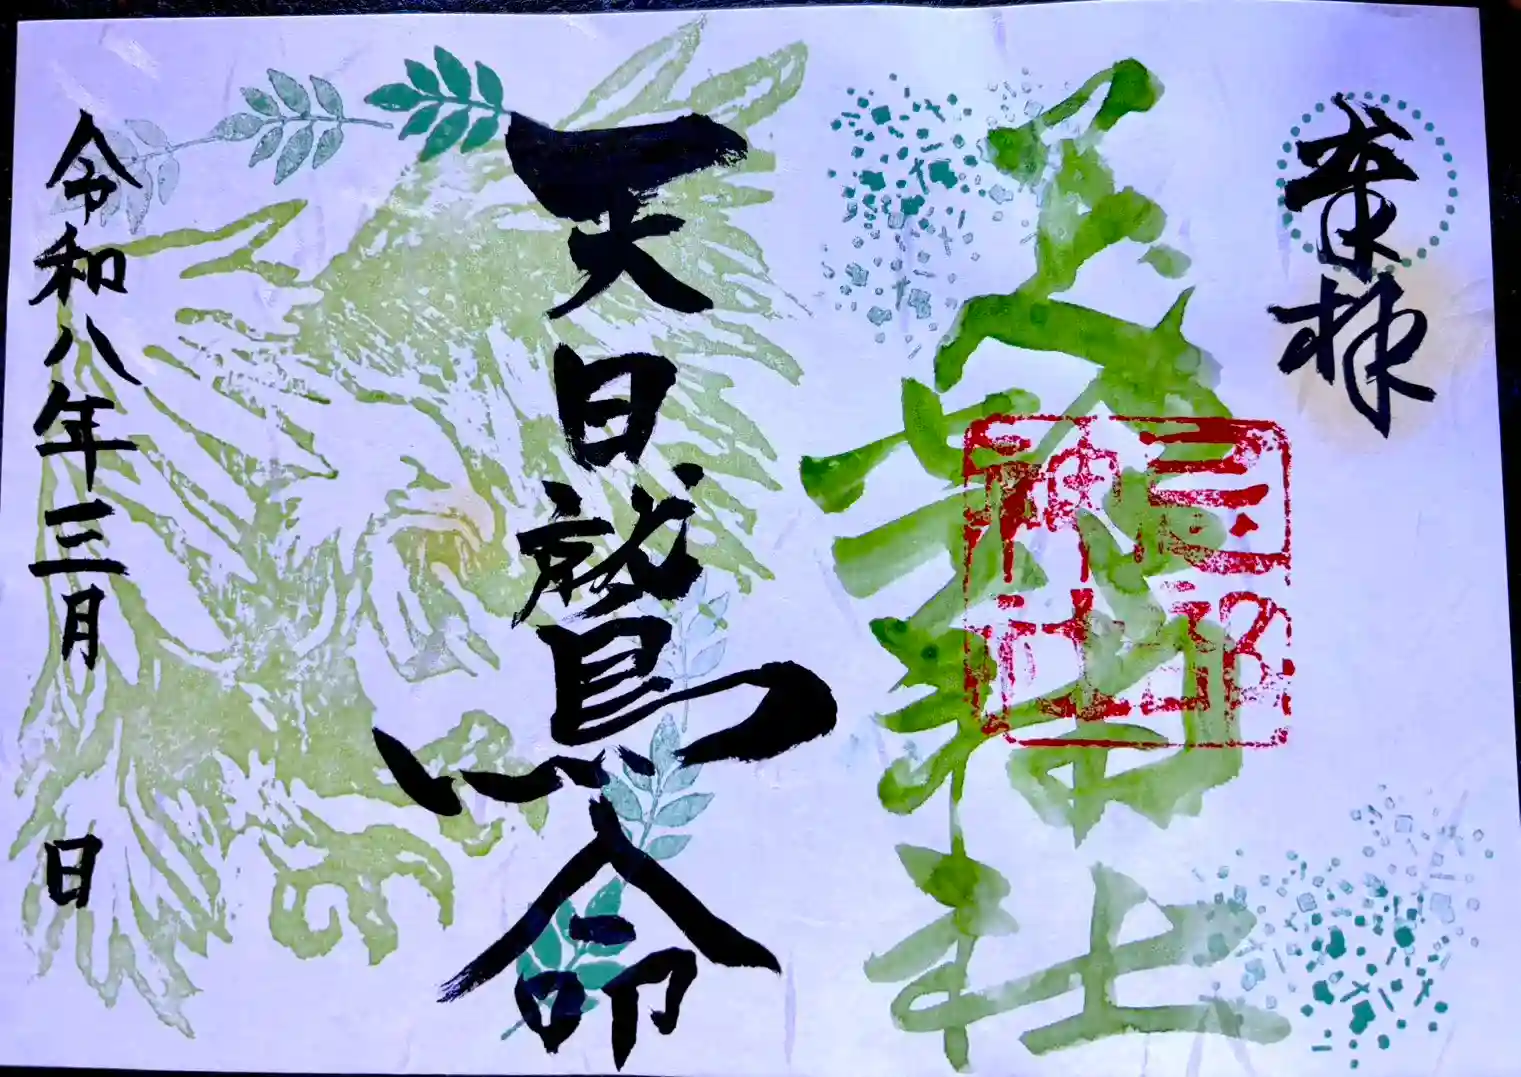 奉拝
神社
忌部
神社
天日鷲命
令和八年三月 日